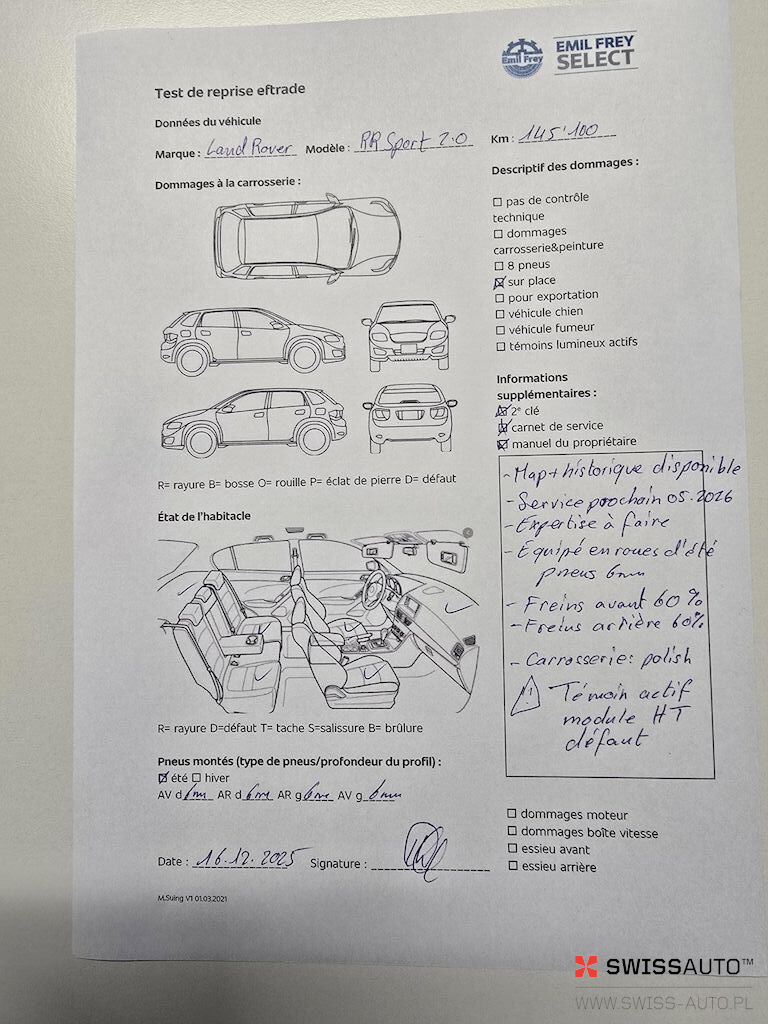 Emil Frey
EMIL FREY
SELECT
Test de reprise eftrade
Données du véhicule
Marque : Land Rover Modèle : RR Sport 2.0 Km : 145'100
Dommages à la carrosserie :
Descriptif des dommages :
pas de contrôle
technique
dommages
carrosserie&peinture
8 pneus
sur place
pour exportation
véhicule chien
véhicule fumeur
témoins lumineux actifs
Informations
supplémentaires :
2e clé
carnet de service
manuel du propriétaire
R= rayure B= bosse O= rouille P= éclat de pierre D= défaut
État de l'habitacle
- Map + historique disponible
- Service prochain 05.2026
- Expertise à faire
- Equipé en roues d'été
pneus 6mm
- Freins avant 60 %
- Freins arrière 60%
- Carrosserie: polish
! Témoin actif
module HT
défaut
R= rayure D=défaut T= tache S=salissure B= brûlure
Pneus montés (type de pneus/profondeur du profil) :
été hiver
AV d 6mm AR d 6mm AR g 6mm AV g 6mm
dommages moteur
dommages boîte vitesse
essieu avant
essieu arrière
Date : 16.12.2025 Signature :
M.Suing V1 01.03.2021
SWISSAUTO™
WWW.SWISS-AUTO.PL